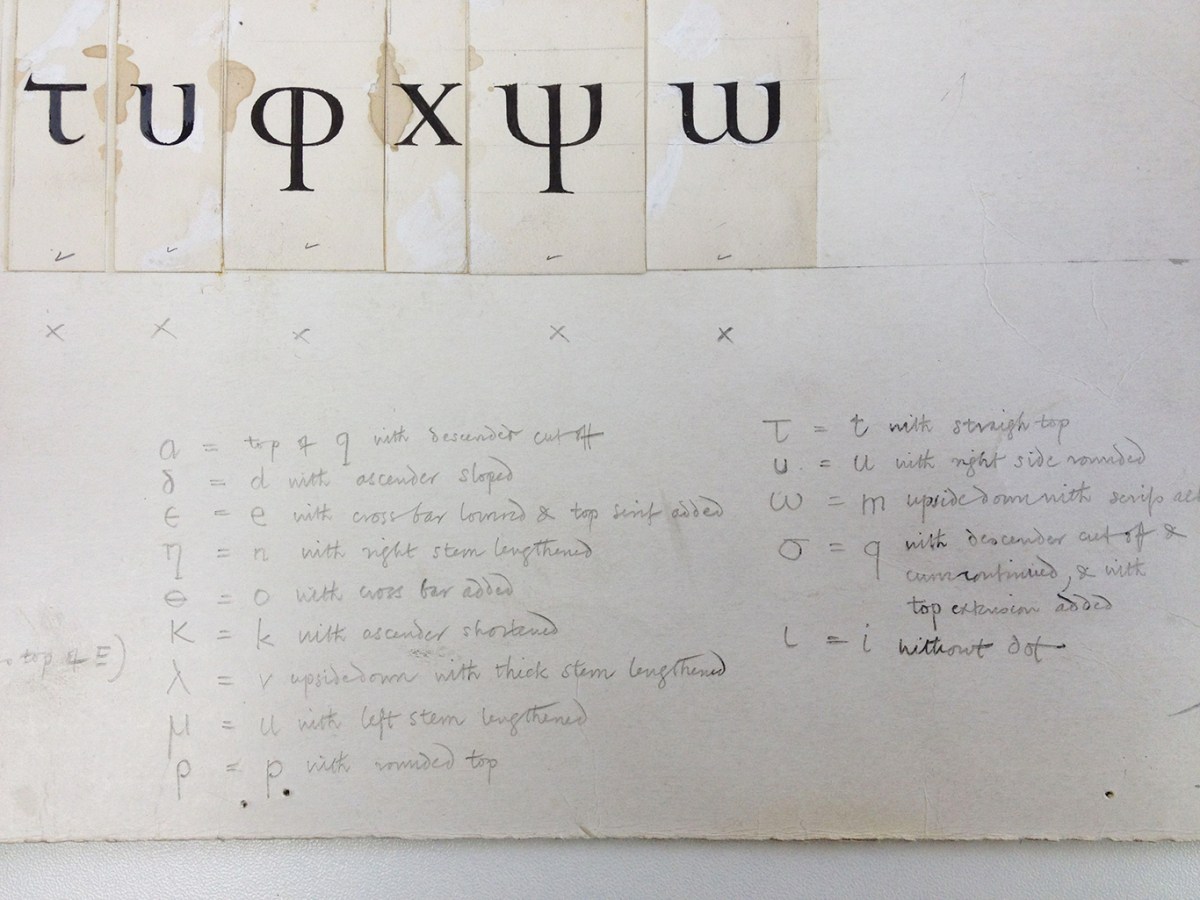 τ υ φ χ ψ ω
α = top of q with descender cut off
δ = d with ascender sloped
ϵ = e with cross bar lowered & top serif added
η = n with right stem lengthened
θ = o with cross bar added
κ = k with ascender shortened
top of Ξ)
λ = v upsidedown with thick stem lengthened
μ = u with left stem lengthened
ρ = p with rounded top
τ = t with straigh top
υ = u with right side rounded
ω = m upsidedown with serifs
σ = q with descender cut off &
curve continued, & with
top extension added
ι = i without dot